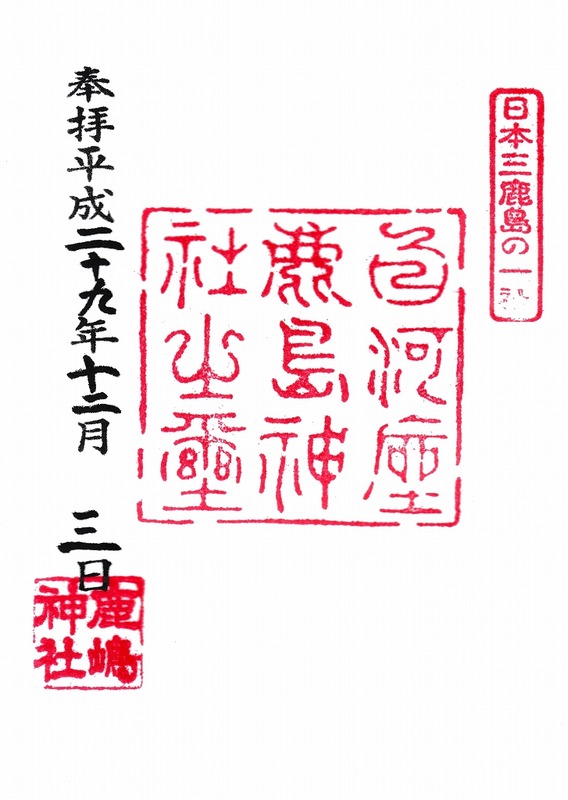 日本三鹿島の一社
白河座
鹿島神
社之璽
奉拝平成二十九年十二月 三日
鹿嶋
神社